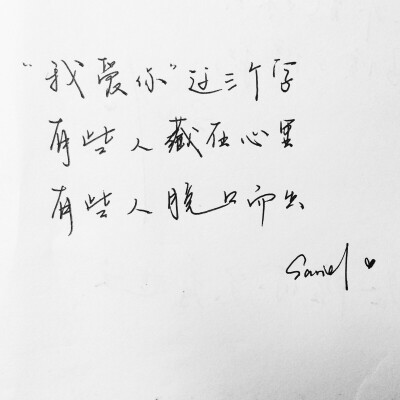 “我爱你”这三个字
有些人藏在心里
有些人脱口而出